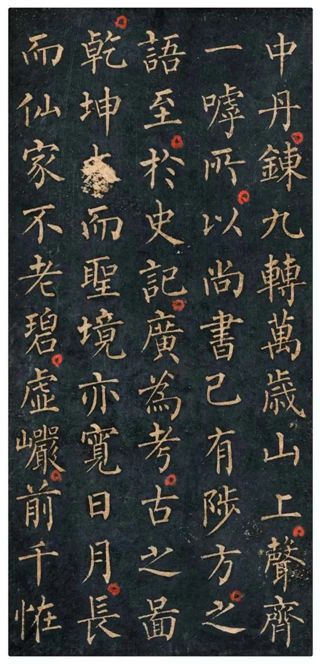 中丹鍊九轉萬歲山上聲齊
一嘑所以尚書已有陟方之
語至於史記廣為考古之啚
乾坤 而聖境亦寬日月長
而仙家不老碧虛巗前千恠